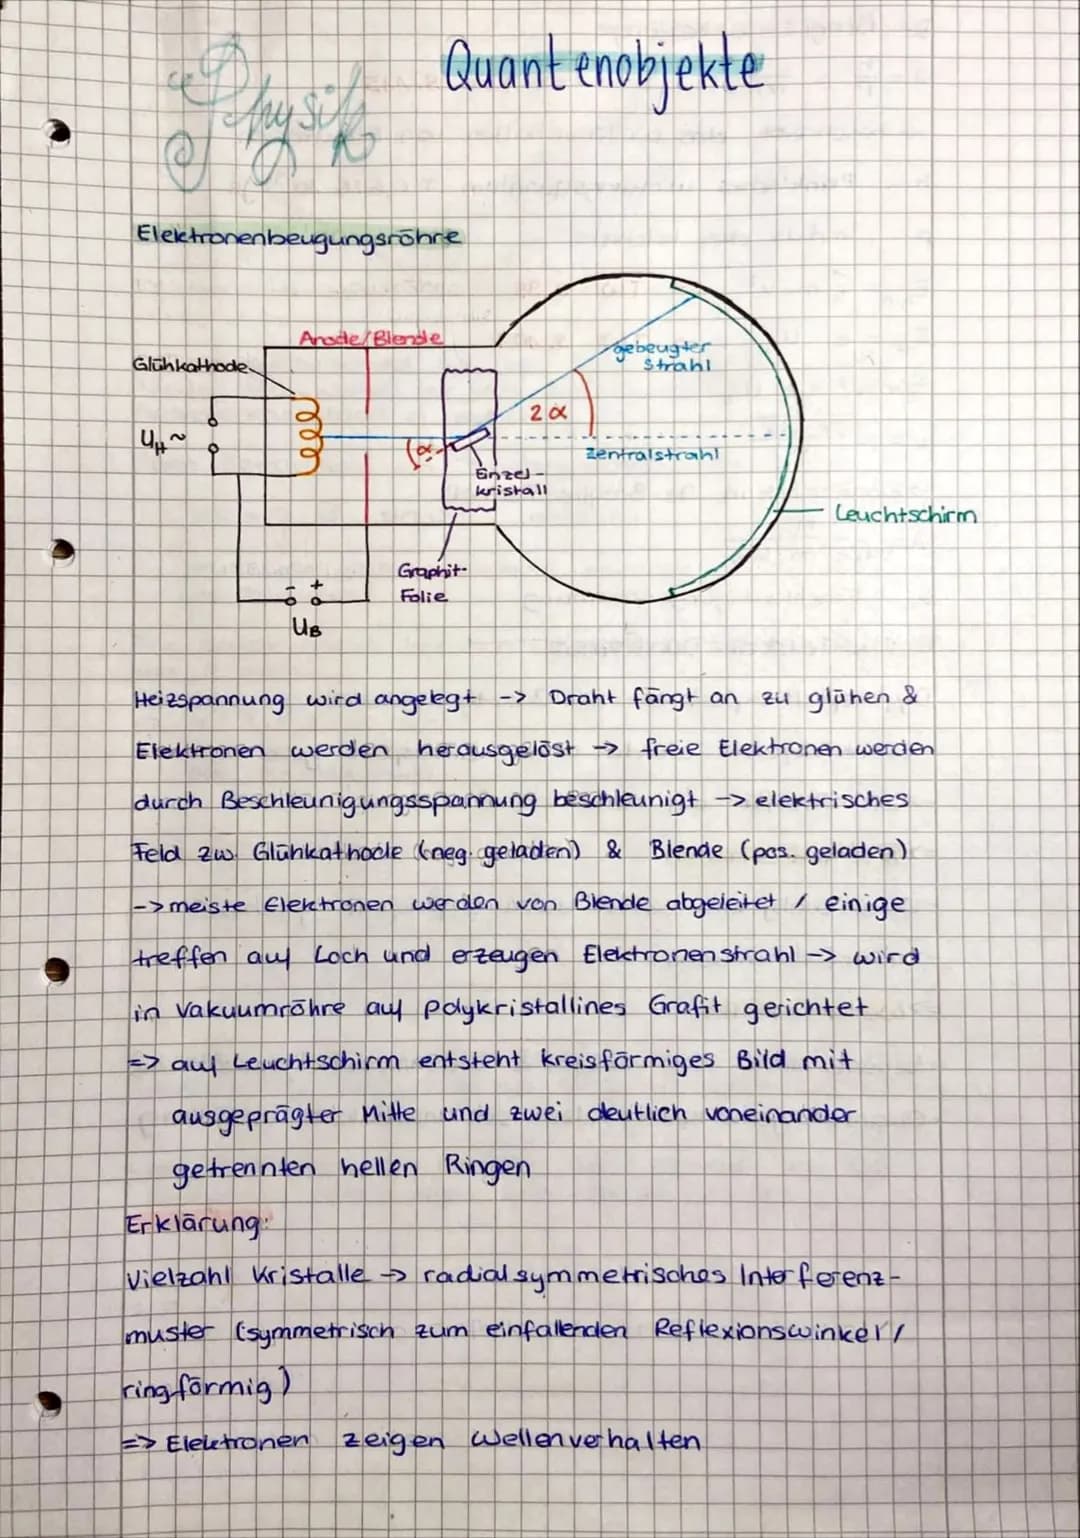 Quantenobjekte
Physik
Elektronenbeugungsröhre
Anode/Blende
Glühkathode
gebeugter
Strahl
2α
U_H ~
α
Zentralstrahl
Einzel-
kristall
Leuchtschirm
Graphit-
Folie
- +
U_B
Heizspannung wird angelegt -> Draht fängt an zu glühen &
Elektronen werden herausgelöst -> freie Elektronen werden
durch Beschleunigungsspannung beschleunigt -> elektrisches
Feld zw. Glühkathode (neg. geladen) & Blende (pos. geladen)
-> meiste Elektronen werden von Blende abgeleitet / einige
treffen auf Loch und erzeugen Elektronenstrahl -> wird
in Vakuumröhre auf polykristallines Grafit gerichtet
=> auf Leuchtschirm entsteht kreisförmiges Bild mit
ausgeprägter Mitte und zwei deutlich voneinander
getrennten hellen Ringen
Erklärung:
Vielzahl Kristalle -> radialsymmetrisches Interferenz-
muster (symmetrisch zum einfallenden Reflexionswinkel /
ringförmig)
=> Elektronen zeigen Wellenverhalten